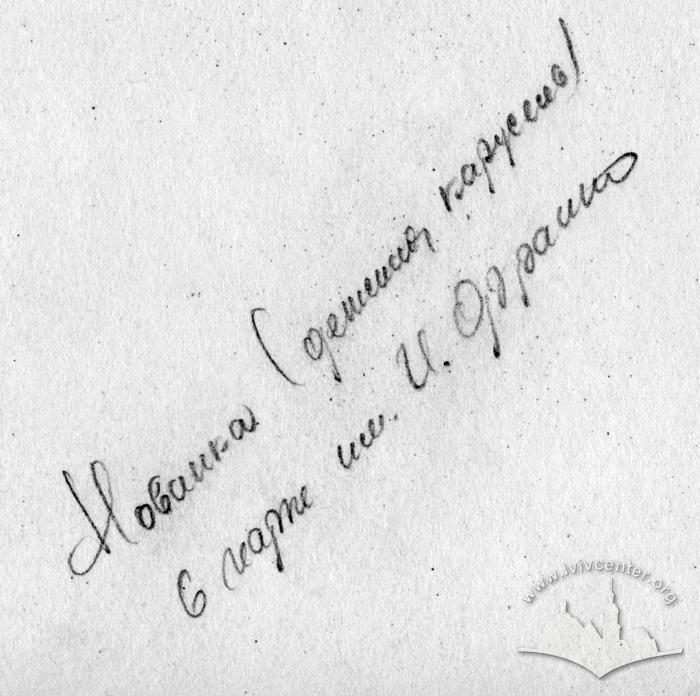 Новинка (детская карусель)
в парке им. И. Франко
www.lvivcenter.org